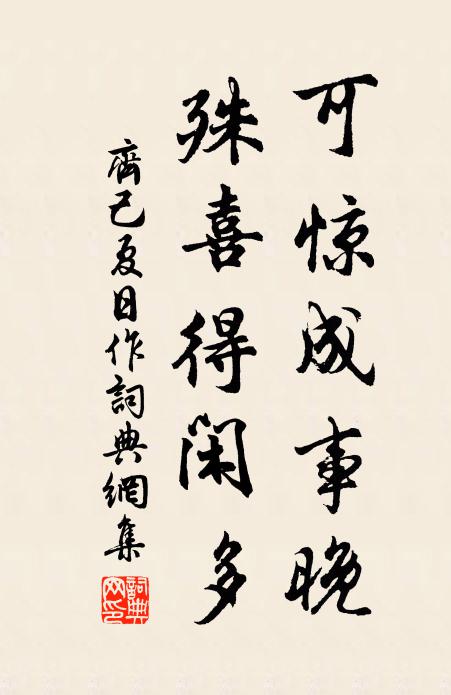 可惊成事晚
殊喜得闲多
齊己夏日作詞典網集
詞典网印